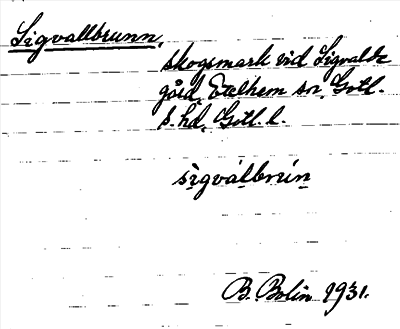 Sigvallbrunn,
skogsmark vid Sigvalde
gård, Etelhem sn, Gotl.
s. hd, Gotl. l.
sìgválbrún
B. Bolin 1931.